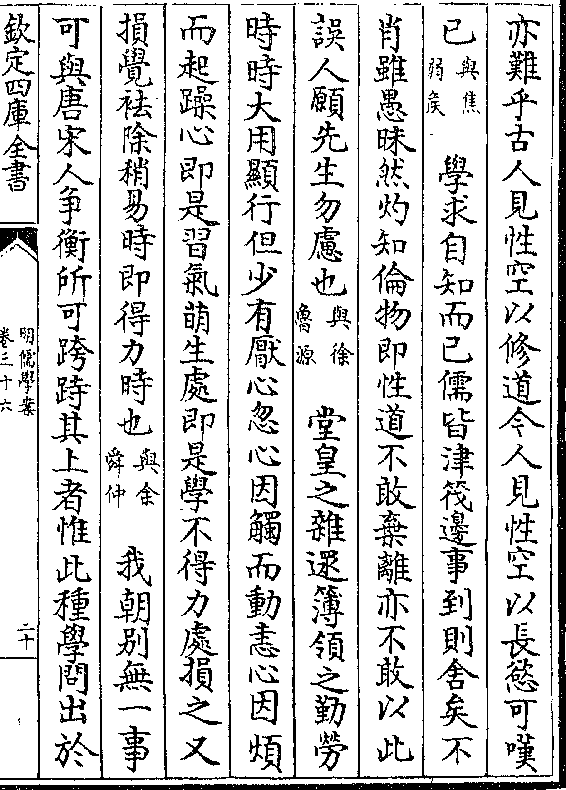 亦難乎古人見性空以修道今人見性空以長慾可嘆
已與焦弱矦　學求自知而已儒皆津筏邊事到則舍矣不
肖雖愚昧然灼知倫物即性道不敢棄離亦不敢以此
誤人願先生勿慮也與徐魯源　堂皇之雜遝簿領之勤勞
時時大用顯行但少有厭心忽心因觸而動恚心因煩
而起躁心即是習氣萌生處即是學不得力處損之又
損覺袪除稍易時即得力時也與余舜仲　我朝別無一事
可與唐宋人爭衡所可跨跱其上者惟此種學問出於
欽定四庫全書
明儒學案
卷三十六
二十